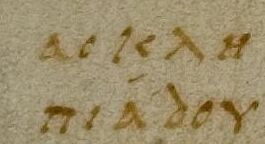 ασκλη
πιάδου